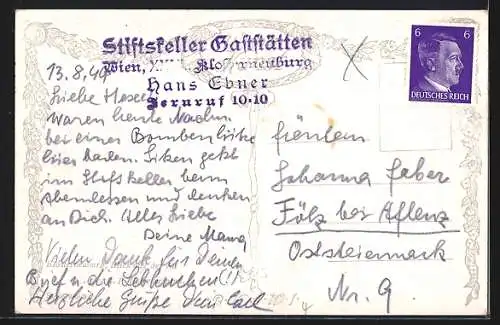 Stiftskeller Gaststätten
Wien, Klosterneuburg
Hans Ebner
Fernruf 10-10
13.8.
Liebe
waren heute Nachm.
bei einer
baden. Sitzen jetzt
im Stiftskeller beim
Abendessen und denken
an Dich. Alles Liebe
Deine Mama
Vielen Dank für Deinen
Brief u. die Lebkuchen
Herzliche Grüße Dein
6 6
DEUTSCHES REICH
Fräulein
Johanna Faber
Fölz bei Aflenz
Oststeiermark
Nr. 9.